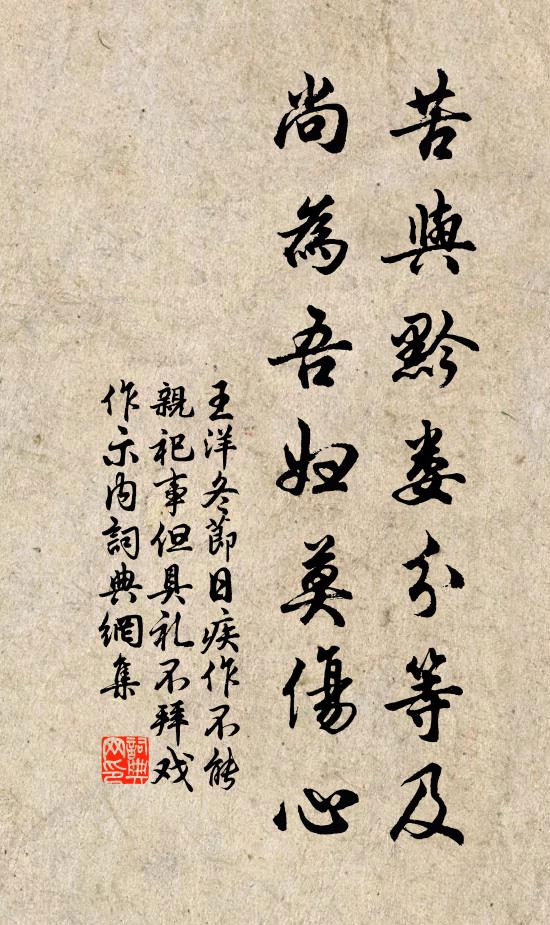 苦與黔婁分等及
尚為吾婦莫傷心
王洋冬節日疾作不能
親祀事但具礼不拜戏
作示内詞典網集
詞典网印